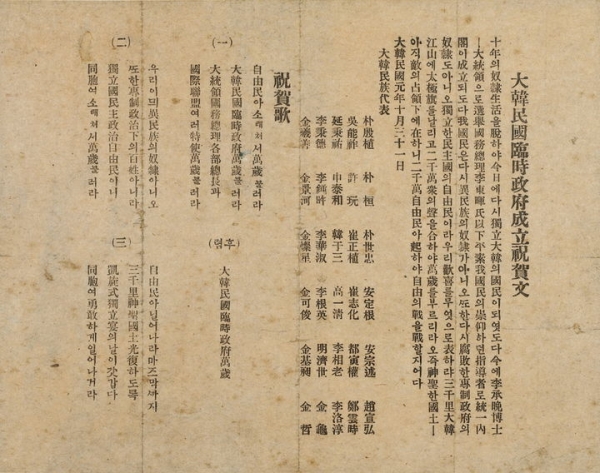 大韓民國臨時政府成立祝賀文
十年의奴隷生活을脫하야今日에다시獨立大韓의國民이되엿도다今에李承晩博士
ー大統領으로選擧國務總理李東暉氏以下平素我國民의崇仰하던指導者로統一內
閣이成立되도다我國民은다시異民族의奴隷가아니오또한다시腐敗한專制政府의
奴隷도아니오獨立한民主國의自由民이라우리歡喜를무엇으로表하랴三千里大韓
江山에太極旗를날리고二千萬衆의聲을合하야萬歲를부르리라오즉神聖한國土ー
아직敵의占領下에在하니二千萬自由民아起하야自由의戰을戰할지어다
大韓民國元年十月三十一日
大韓民族代表
朴殷植 朴桓 朴世忠 安定根 安宗述 趙宣弘
吳能祚 許玩 崔正植 崔志化 都寅權 鄭雲時
延秉祐 申泰和 韓于三 高一淸 李相老 李洛淳
李秉德 李華淑 李根英 明濟世 金龜
金羲善 金景河 金燦星 金可俊 金基昶 金哲
祝賀歌
(一)
自由民아소래쳐서萬歲불러라
大韓民國臨時政府萬歲불러라
大統領國務總理各部總長과
國際聯盟여러特使萬歲불러라
(후렴)
大韓民國臨時政府萬歲
(二)
우리이믜異民族의奴隷아니오
또한專制政治下의百姓아니라
獨立國民主政治自由民이니
同胞여소래쳐서萬歲불러라
(三)
自由民아닐어나라마즈막까지
三千里神聖國土光復하도록
凱旋式獨立宴의날이갓갑다
同胞여勇敢하게일어나거라